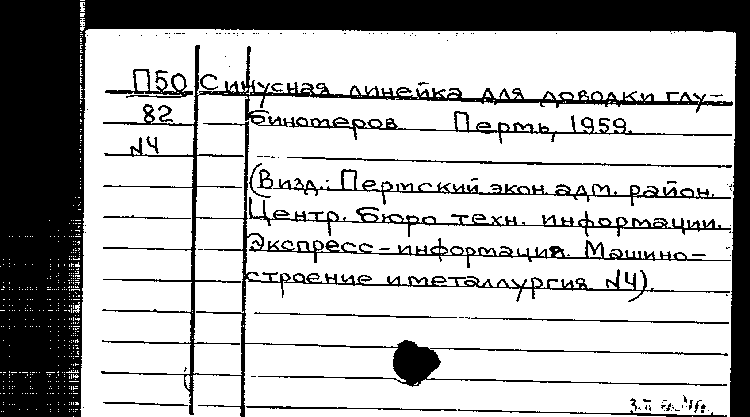 П50 Синусная линейка для доводки глу-
82 биномеров Пермь, 1959.
N4
(Визд.: Пермский экон. адм. район.
Центр. бюро техн. информации.
Экспресс-информация. Машино-
строение и металлургия N4).